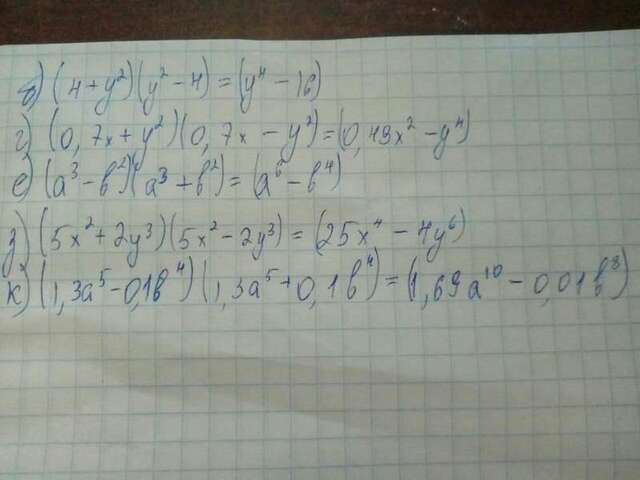 б) (4+y²)(y²-4)=(y⁴-16)
г) (0,7x+y²)(0,7x-y²)=(0,49x²-y⁴)
е) (a³-b²)(a³+b²)=(a⁶-b⁴)
з) (5x²+2y³)(5x²-2y³)=(25x⁴-4y⁶)
к) (1,3a⁵-0,1b⁴)(1,3a⁵+0,1b⁴)=(1,69a¹⁰-0,01b⁸)